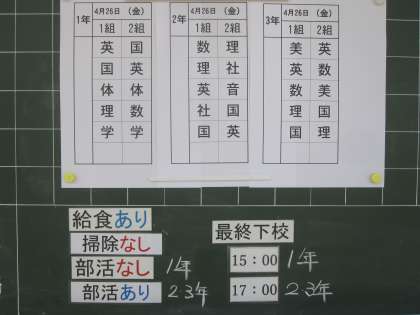 1年 4月26日 (金)
1組 2組
英 国
国 英
体 体
理 数
学 学
2年 4月26日 (金)
1組 2組
数 理
理 社
英 音
社 国
国 英
3年 4月26日 (金)
1組 2組
美 英
英 数
数 美
理 国
国 理
給食あり
掃除なし
部活なし 1年
部活あり 2 3年
最終下校
15:00 1年
17:00 2 3年